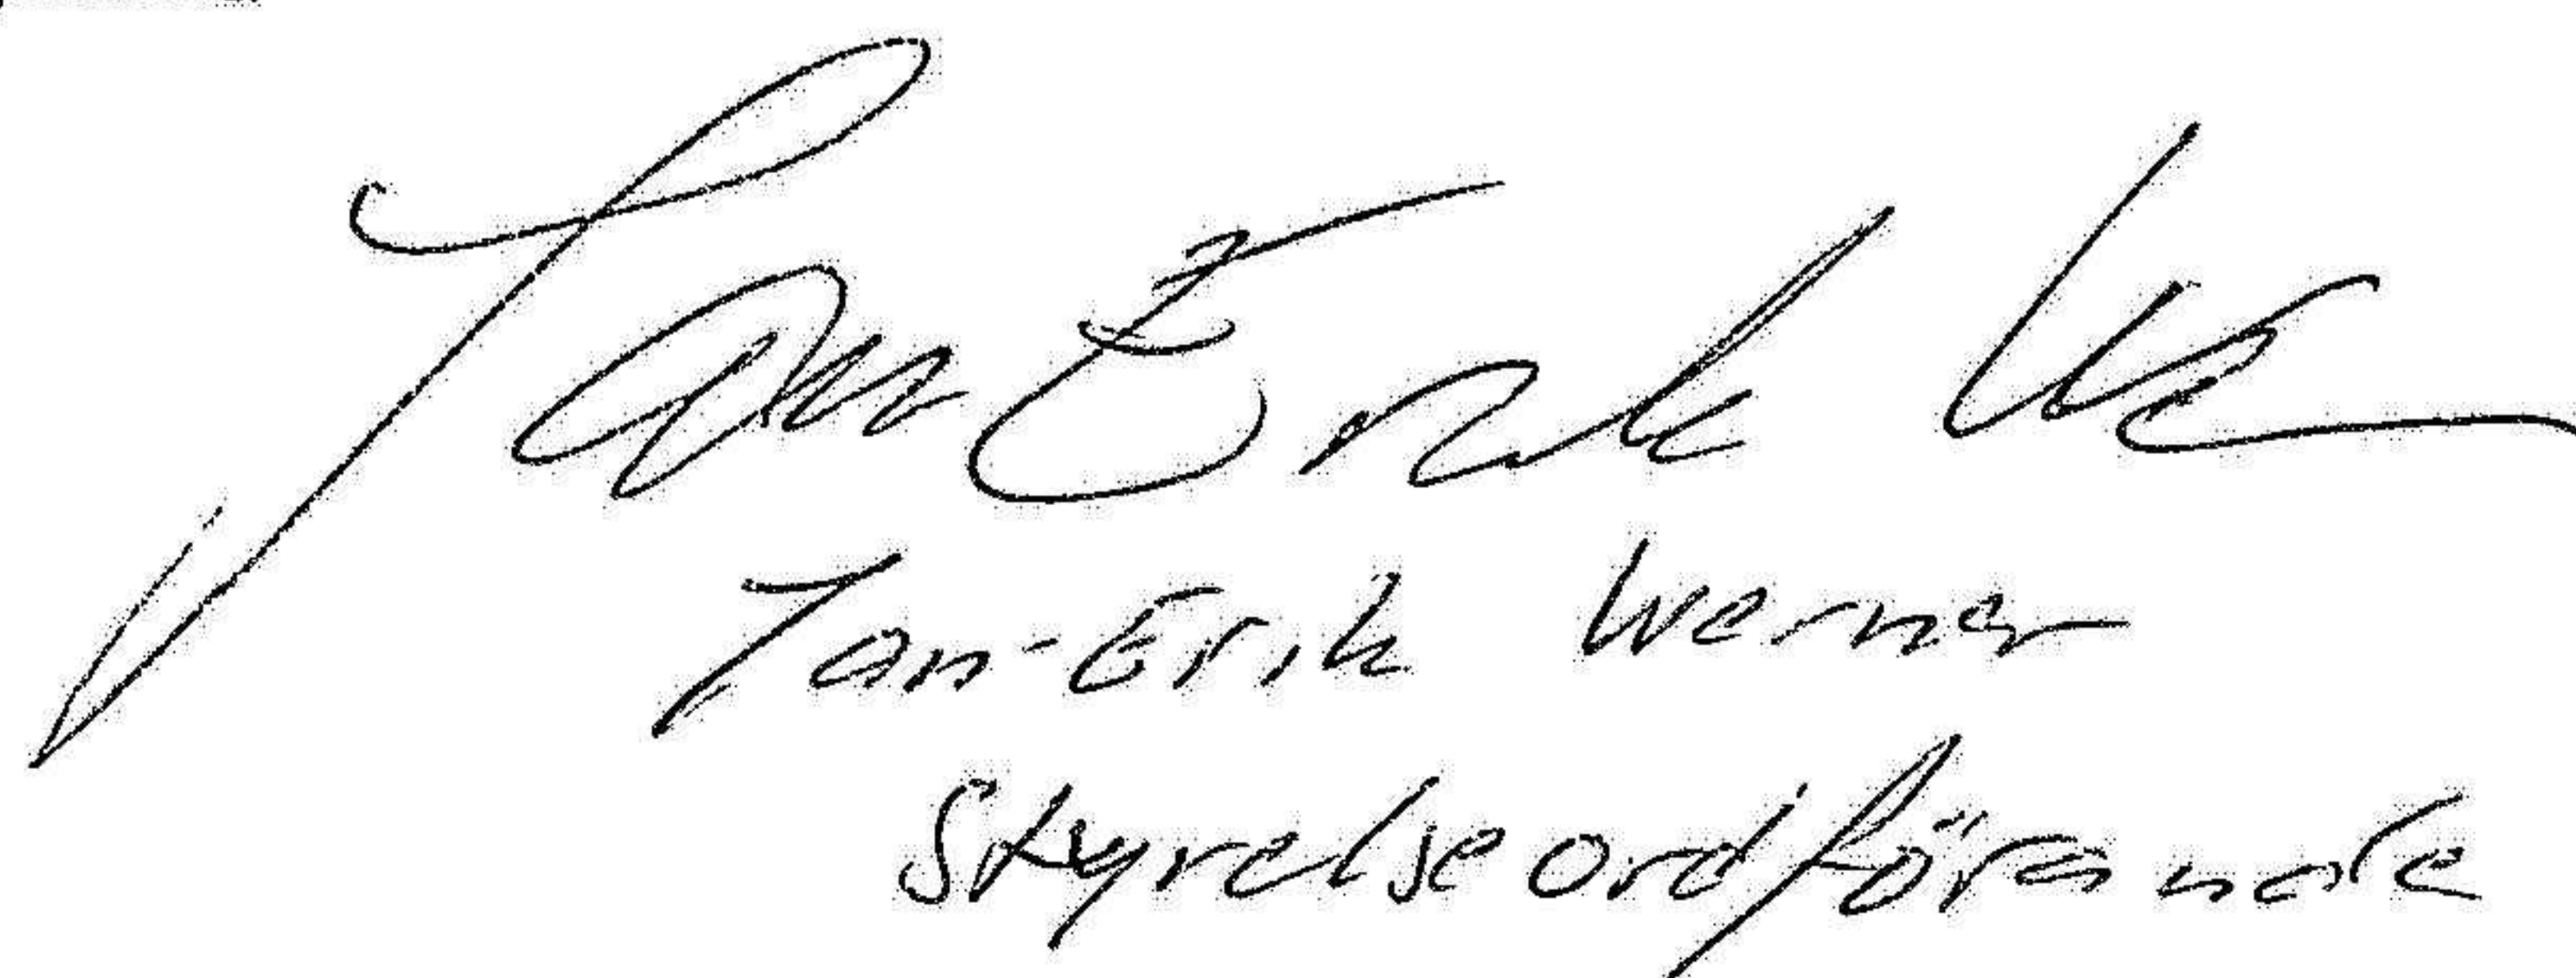 Jan-Erik We
Jan-Erik Werner
Styrelseordförande